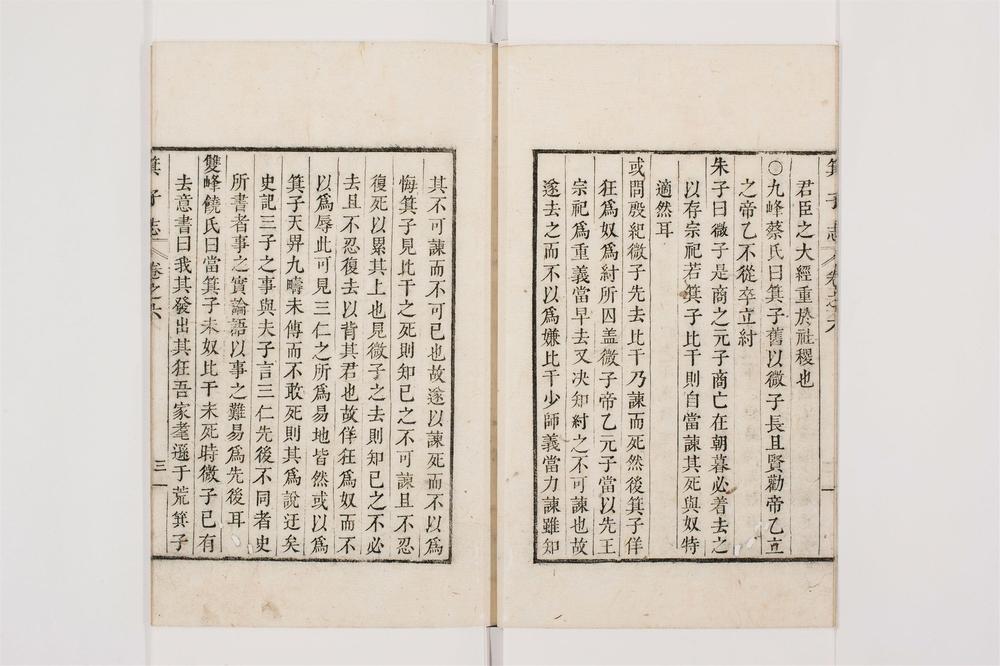 箕子志 卷之六
君臣之大經重於社稷也
○九峰蔡氏曰箕子舊以微子長且賢勸帝乙立
之帝乙不從卒立紂
朱子曰微子是商之元子商亡在朝暮必着去之
以存宗祀若箕子比干則自當諫其死與奴特
適然耳
或問殷紀微子先去比干乃諫而死然後箕子佯
狂爲奴爲紂所囚盖微子帝乙元子當以先王
宗祀爲重義當早去又决知紂之不可諫也故
遂去之而不以爲嫌比干少師義當力諫雖知
其不可諫而不可已也故遂以諫死而不以爲
悔箕子見比干之死則知已之不可諫且不忍
復死以累其上也見微子之去則知已之不必
去且不忍復去以背其君也故佯狂爲奴而不
以爲辱此可見三仁之所爲易地皆然或以爲
箕子天畀九疇未傳而不敢死則其爲說迂矣
史記三子之事與夫子言三仁先後不同者史
所書者事之實論語以事之難易爲先後耳
雙峰饒氏曰當箕子未奴比干未死時微子已有
去意書曰我其發出其狂吾家耄遜于荒箕子
箕子志 卷之六 三